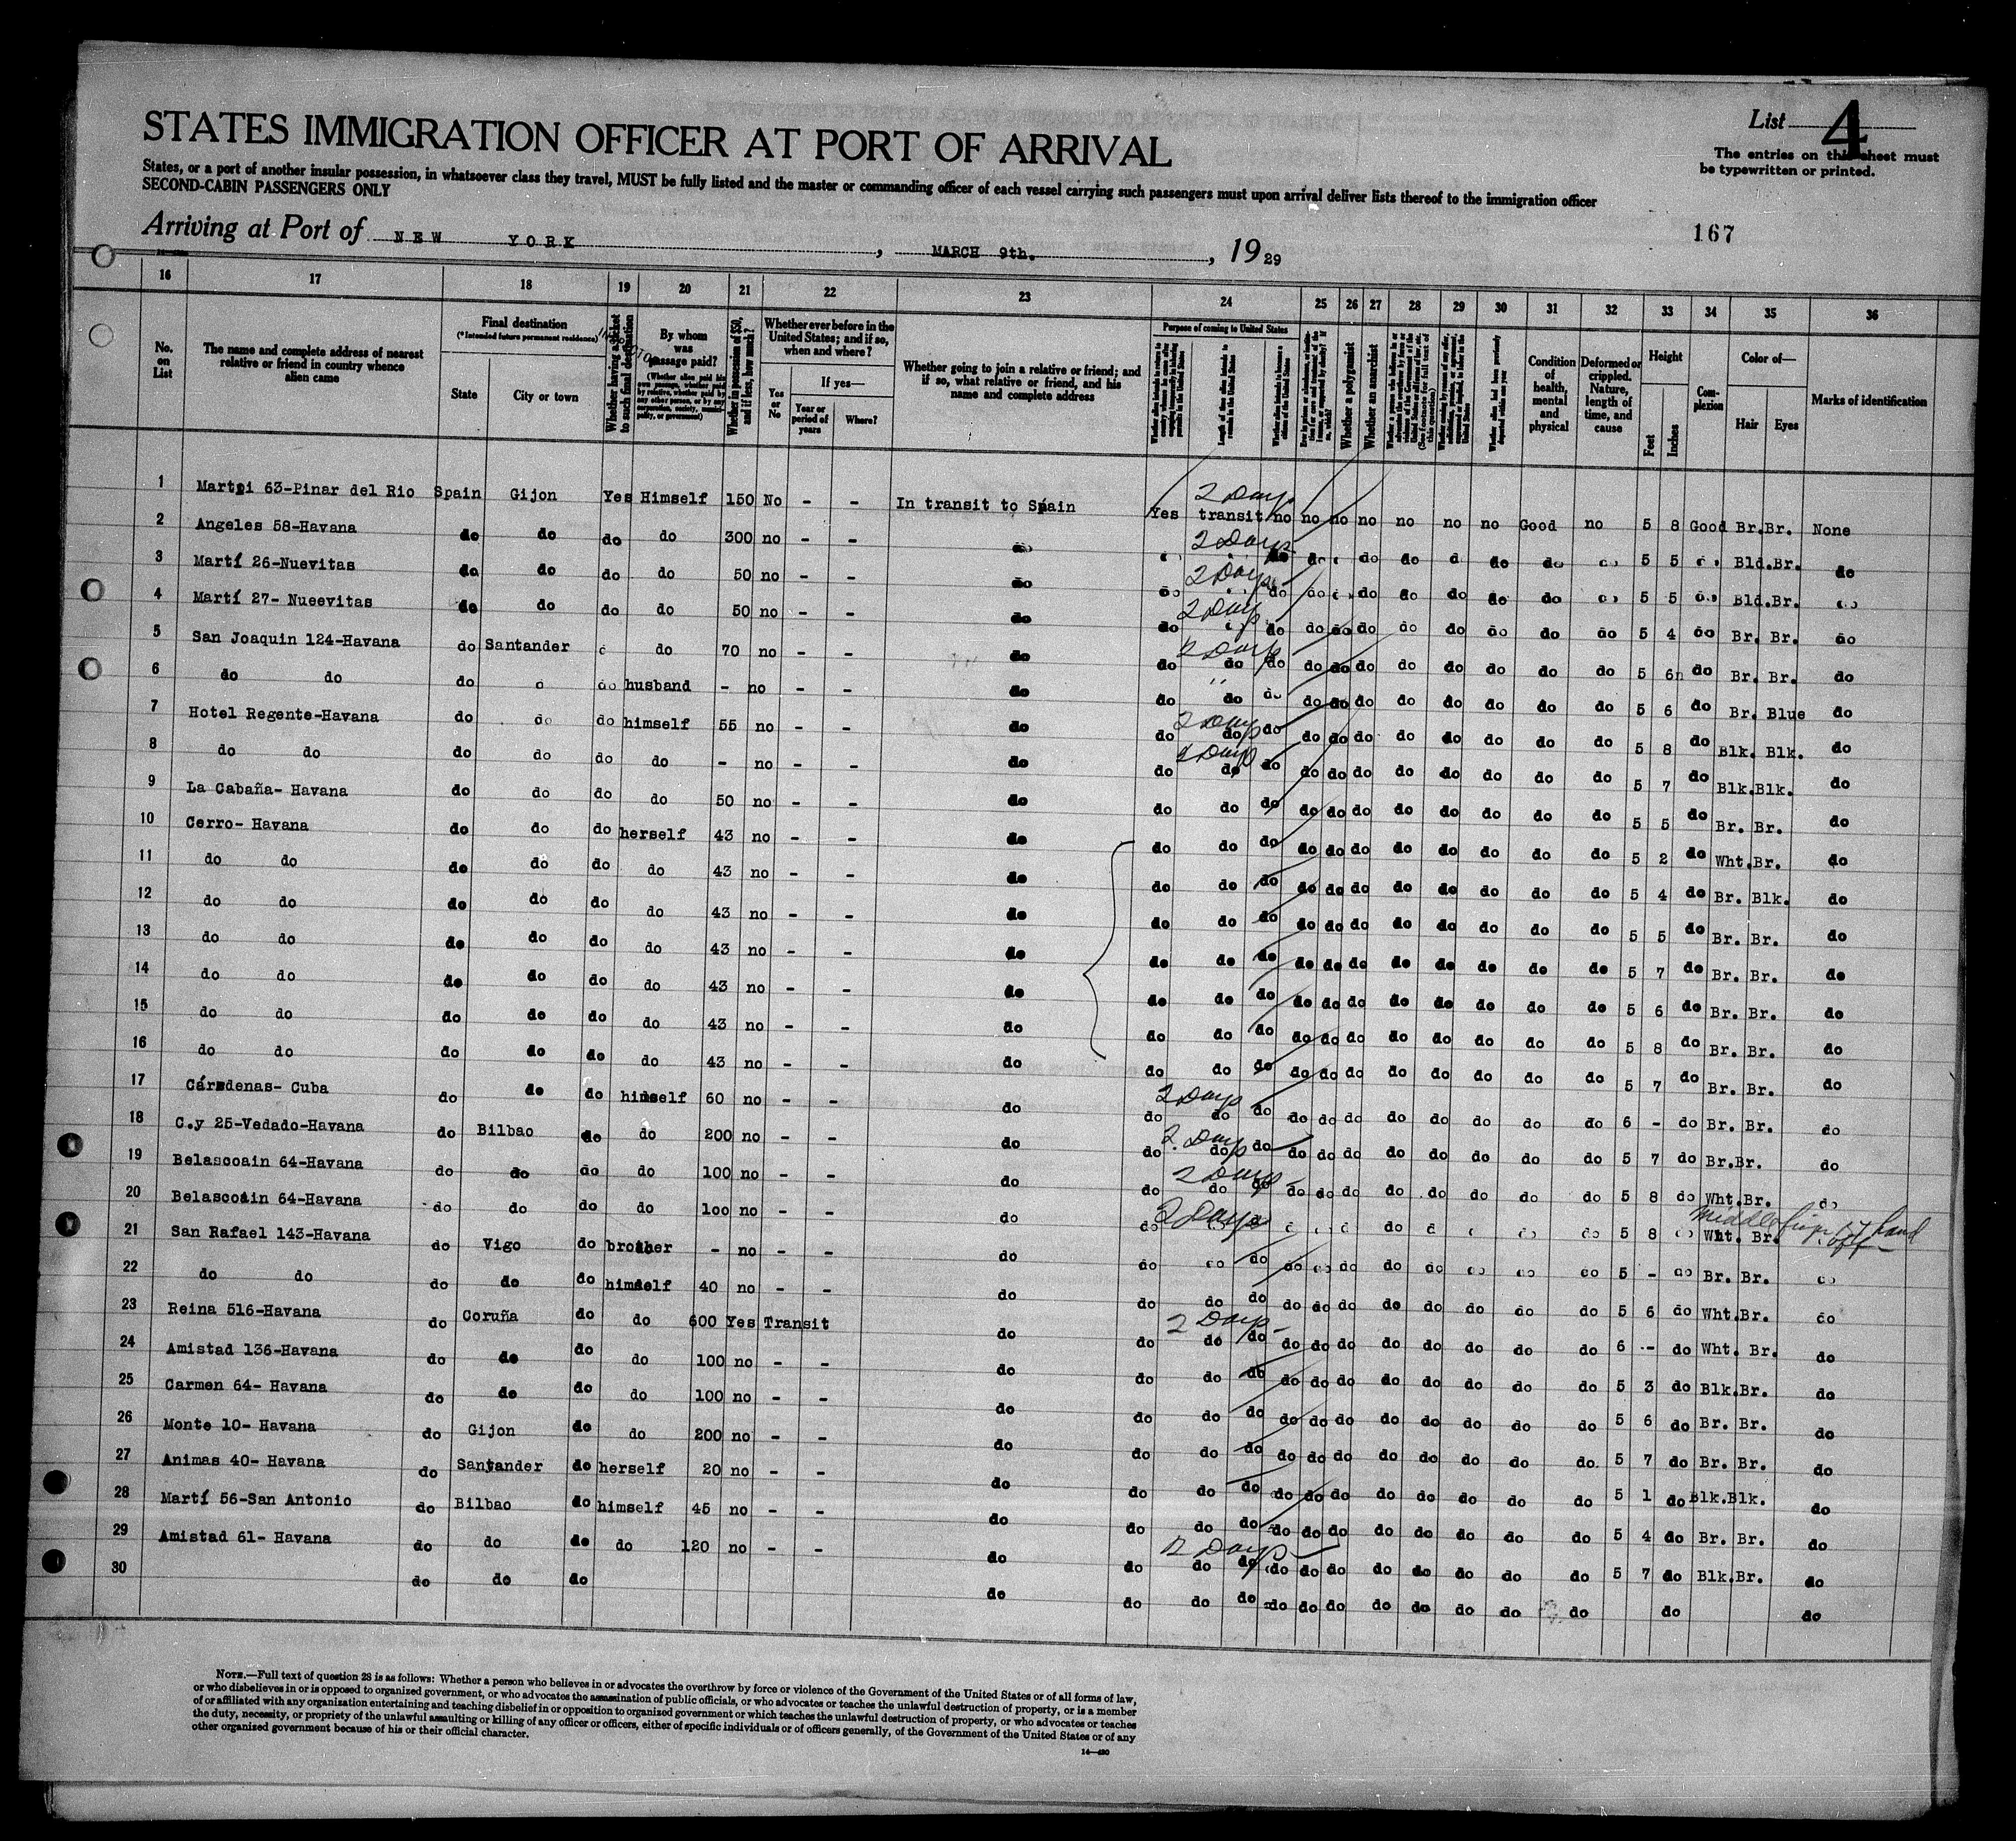 List 4
STATES IMMIGRATION OFFICER AT PORT OF ARRIVAL
The entries on this sheet must
be typewritten or printed.
States, or a port of another insular possession, in whatsoever class they travel, MUST be fully listed and the master or commanding officer of each vessel carrying such passengers must upon arrival deliver lists thereof to the immigration officer
SECOND-CABIN PASSENGERS ONLY
167
Arriving at Port of NEW YORK, MARCH 9th., 1929
16 17 18 19 20 21 22 23 24 25 26 27 28 29 30 31 32 33 34 35 36
No. on List
The name and complete address of nearest relative or friend in country whence alien came
Final destination
(*Intended future permanent residence)
State
City or town
Whether having a ticket to such final destination
By whom was passage paid?
Whether in possession of $50, and if less, how much?
Whether ever before in the United States; and if so, when and where?
Yes or No
If yes—
Year or period of years
Where?
Whether going to join a relative or friend; and if so, what relative or friend, and his name and complete address
Purpose of coming to United States
Whether a polygamist
Whether an anarchist
Condition of health, mental and physical
Deformed or crippled. Nature, length of time, and cause
Height
Feet
Inches
Complexion
Color of—
Hair
Eyes
Marks of identification
1 Martpi 63-Pinar del Rio Spain Gijon Yes Himself 150 No - - In transit to Spain Yes 2 Days transit no no no no no no no Good no 5 8 Good Br. Br. None
2 Angeles 58-Havana do do do do 300 no - - do 2 Days do do do do do do do 5 5 Bld. Br. do
3 Martí 26-Nuevitas do do do do 50 no - - do do 2 Days do do do do do do do 5 5 do Bld. Br.
4 Martí 27- Nueevitas do do do do 50 no - - do do 2 Days do do do do do do do do do do 5 4 do Br. Br. do
5 San Joaquin 124-Havana do Santander do 70 no - - do do 2 Days do do do do do do do do do do do 5 6 do Br. Br. do
6 do do do do husband - no - - do do " do do do do do do do do do do 5 6 do Br. Blue do
7 Hotel Regente-Havana do do do himself 55 no - - do do 2 Days do do do do do do do do do do do 5 8 do Blk. Blk. do
8 do do do do do do - no - - do do 2 Days do do do do do do do do do do do 5 7 do Blk. Blk. do
9 La Cabaña- Havana do do do do 50 no - - do do do do do do do do do do do do 5 5 do Br. Br. do
10 Cerro- Havana do do do herself 43 no - - do do do do do do do do do do do do 5 2 do Wht. Br. do
11 do do do do do do 43 no - - do do do do do do do do do do do do 5 4 do Br. Blk. do
12 do do do do do do 43 no - - do do do do do do do do do do do do 5 5 do Br. Br. do
13 do do do do do do 43 no - - do do do do do do do do do do do do 5 7 do Br. Br. do
14 do do do do do do 43 no - - do do do do do do do do do do do do 5 6 do Br. Br. do
15 do do do do do do 43 no - - do do do do do do do do do do do do 5 8 do Br. Br. do
16 do do do do do do 43 no - - do do do do do do do do do do do do 5 7 do Br. Br. do
17 Cárdenas- Cuba do do do himself 60 no - - do do 2 Days do do do do do do do do do do do 6 - do Br. Br. do
18 C.y 25-Vedado-Havana do Bilbao do do 200 no - - do do 2 Days do do do do do do do do do do do 5 7 do Br. Br. do
19 Belascoain 64-Havana do do do do 100 no - - do do 2 Days do do do do do do do do do do do 5 8 do Wht. Br. do
20 Belascoain 64-Havana do do do do 100 no - - do do 2 Days do 5 8 Wht. Br. Middle finger hand off
21 San Rafael 143-Havana do Vigo do brother - no - - do do do do do do do do do 5 - do Br. Br.
22 do do do do do himself 40 no - - do do do do do do do do do do do do 5 6 do Wht. Br. do
23 Reina 516-Havana do Coruña do do 600 Yes Transit do do 2 Days do do do do do do do do do do do 6 - do Wht. Br. do
24 Amistad 136-Havana do do do do 100 no - - do do do do do do do do do do do do 5 3 do Blk. Br. do
25 Carmen 64- Havana do do do do 100 no - - do do do do do do do do do do do do 5 6 do Br. Br. do
26 Monte 10- Havana do Gijon do do 200 no - - do do do do do do do do do do do do. 5 7 do Br. Br. do
27 Animas 40- Havana do Santander do herself 20 no - - do do do do do do do do do do do do 5 1 do Blk. Blk. do
28 Martí 56-San Antonio do Bilbao do himself 45 no - - do do do do do do do do do do do do 5 4 do Br. Br. do
29 Amistad 61- Havana do do do do 120 no - - do do 2 Days do do do do do do do do do do do 5 7 do Blk. Br. do
30 do do do do do do do do do do do do do do do do do
NOTE.—Full text of question 28 is as follows: Whether a person who believes in or advocates the overthrow by force or violence of the Government of the United States or of all forms of law,
or who disbelieves in or is opposed to organized government, or who advocates the assassination of public officials, or who advocates or teaches the unlawful destruction of property, or is a member
of or affiliated with any organization entertaining and teaching disbelief in or opposition to organized government or which teaches the unlawful destruction of property, or who advocates or teaches
the duty, necessity, or propriety of the unlawful assaulting or killing of any officer or officers, either of specific individuals or of officers generally, of the Government of the United States or of any
other organized government because of his or their official character.
14—430